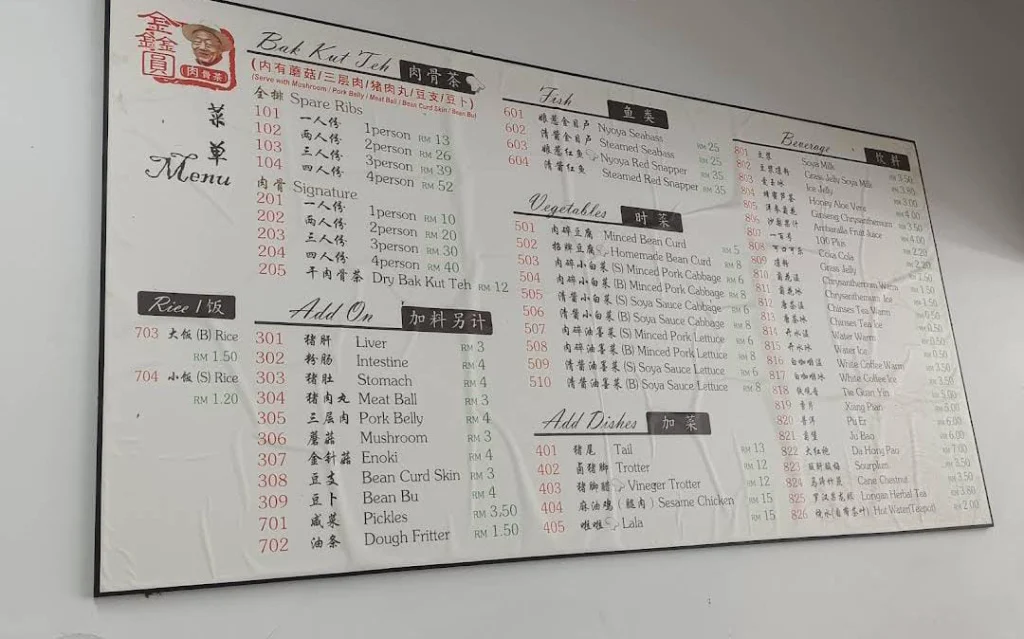 金鑫圓
肉骨茶
菜单
Menu
Bak Kut Teh 肉骨茶
(内有蘑菇/三层肉/猪肉丸/豆支/豆卜)
(Serve with Mushroom / Pork Belly / Meat Ball / Bean Curd Skin / Bean Bu)
金排 Spare Ribs
101 一人份 1person RM 13
102 两人份 2person RM 26
103 三人份 3person RM 39
104 四人份 4person RM 52
肉骨 Signature
201 一人份 1person RM 10
202 两人份 2person RM 20
203 三人份 3person RM 30
204 四人份 4person RM 40
205 干肉骨茶 Dry Bak Kut Teh RM 12
Rice / 饭
703 大饭 (B) Rice
RM 1.50
704 小饭 (S) Rice
RM 1.20
Add On 加料另计
301 猪肝 Liver RM 3
302 粉肠 Intestine RM 4
303 猪肚 Stomach RM 4
304 猪肉丸 Meat Ball RM 3
305 三层肉 Pork Belly RM 4
306 蘑菇 Mushroom RM 3
307 金针菇 Enoki RM 4
308 豆支 Bean Curd Skin RM 3
309 豆卜 Bean Bu RM 4
701 咸菜 Pickles RM 3.50
702 油条 Dough Fritter RM 1.50
Fish 鱼类
601 娘惹金目卢 Nyoya Seabass RM 25
602 清酱金目卢 Steamed Seabass RM 25
603 娘惹红鱼 Nyoya Red Snapper RM 35
604 清酱红鱼 Steamed Red Snapper RM 35
Vegetables 时菜
501 肉碎豆腐 Minced Bean Curd RM 5
502 招牌豆腐 Homemade Bean Curd RM 8
503 肉碎小白菜 (S) Minced Pork Cabbage RM 6
504 肉碎小白菜 (B) Minced Pork Cabbage RM 8
505 清酱小白菜 (S) Soya Sauce Cabbage RM 6
506 清酱小白菜 (B) Soya Sauce Cabbage RM 8
507 肉碎油麦菜 (S) Minced Pork Lettuce RM 6
508 肉碎油麦菜 (B) Minced Pork Lettuce RM 8
509 清酱油麦菜 (S) Soya Sauce Lettuce RM 6
510 清酱油麦菜 (B) Soya Sauce Lettuce RM 8
Add Dishes 加菜
401 猪尾 Tail RM 13
402 卤猪脚 Trotter RM 12
403 猪脚醋 Vineger Trotter RM 12
404 麻油鸡 (腿肉) Sesame Chicken RM 15
405 啦啦 Lala RM 15
Beverage 饮料
801 豆浆 Soya Milk RM 3.50
802 豆浆凉粉 Grass Jelly Soya Milk RM 3.80
803 Ice Jelly RM 3.00
804 蜂蜜芦荟 Honey Aloe Vera RM 4.00
805 洋参菊花 Ginseng Chrysanthemum RM 3.50
806 沙梨果汁 Ambaralla Fruit Juice RM 4.00
807 一百号 100 Plus RM 2.20
808 可口可乐 Coca Cola RM 2.20
809 凉粉 Grass Jelly
810 菊花温 Chrysanthemum Warm
811 菊花冰 Chrysanthemum Ice
812 唐茶温 Chinses Tea Warm
813 唐茶冰 Chinses Tea Ice
814 开水温 Water Warm
815 开水冰 Water Ice
816 白咖啡温 White Coffee Warm
817 白咖啡冰 White Coffee Ice RM 3.50
818 铁观音 Tie Guan Yin RM 5.00
819 香片 Xiang Pian RM 5.00
820 普洱 Pu Er RM 6.00
821 菊普 Ju Bao RM 6.00
822 大红袍 Da Hong Pao RM 7.00
823 Sourplum RM 3.50
824 马蹄竹蔗 Cane Chestnut RM 3.50
825 罗汉果龙眼 Longan Herbal Tea RM 3.80
826 烧水(自带茶叶) Hot Water(Teapot) RM 2.00